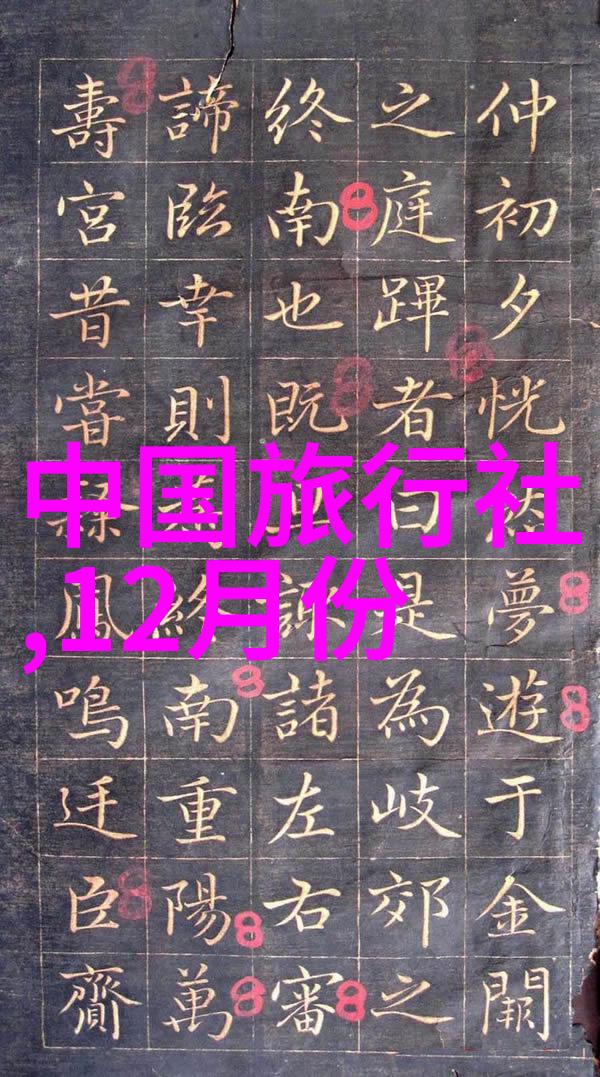 仲初夕恍然夢遊于金闕
之庭蹕者曰是為岐郊之
終南也既諸左右審
諦臨幸則終南重陽萬
壽宮昔嘗鳳鳴廷臣齎
中国旅行社
,12月份